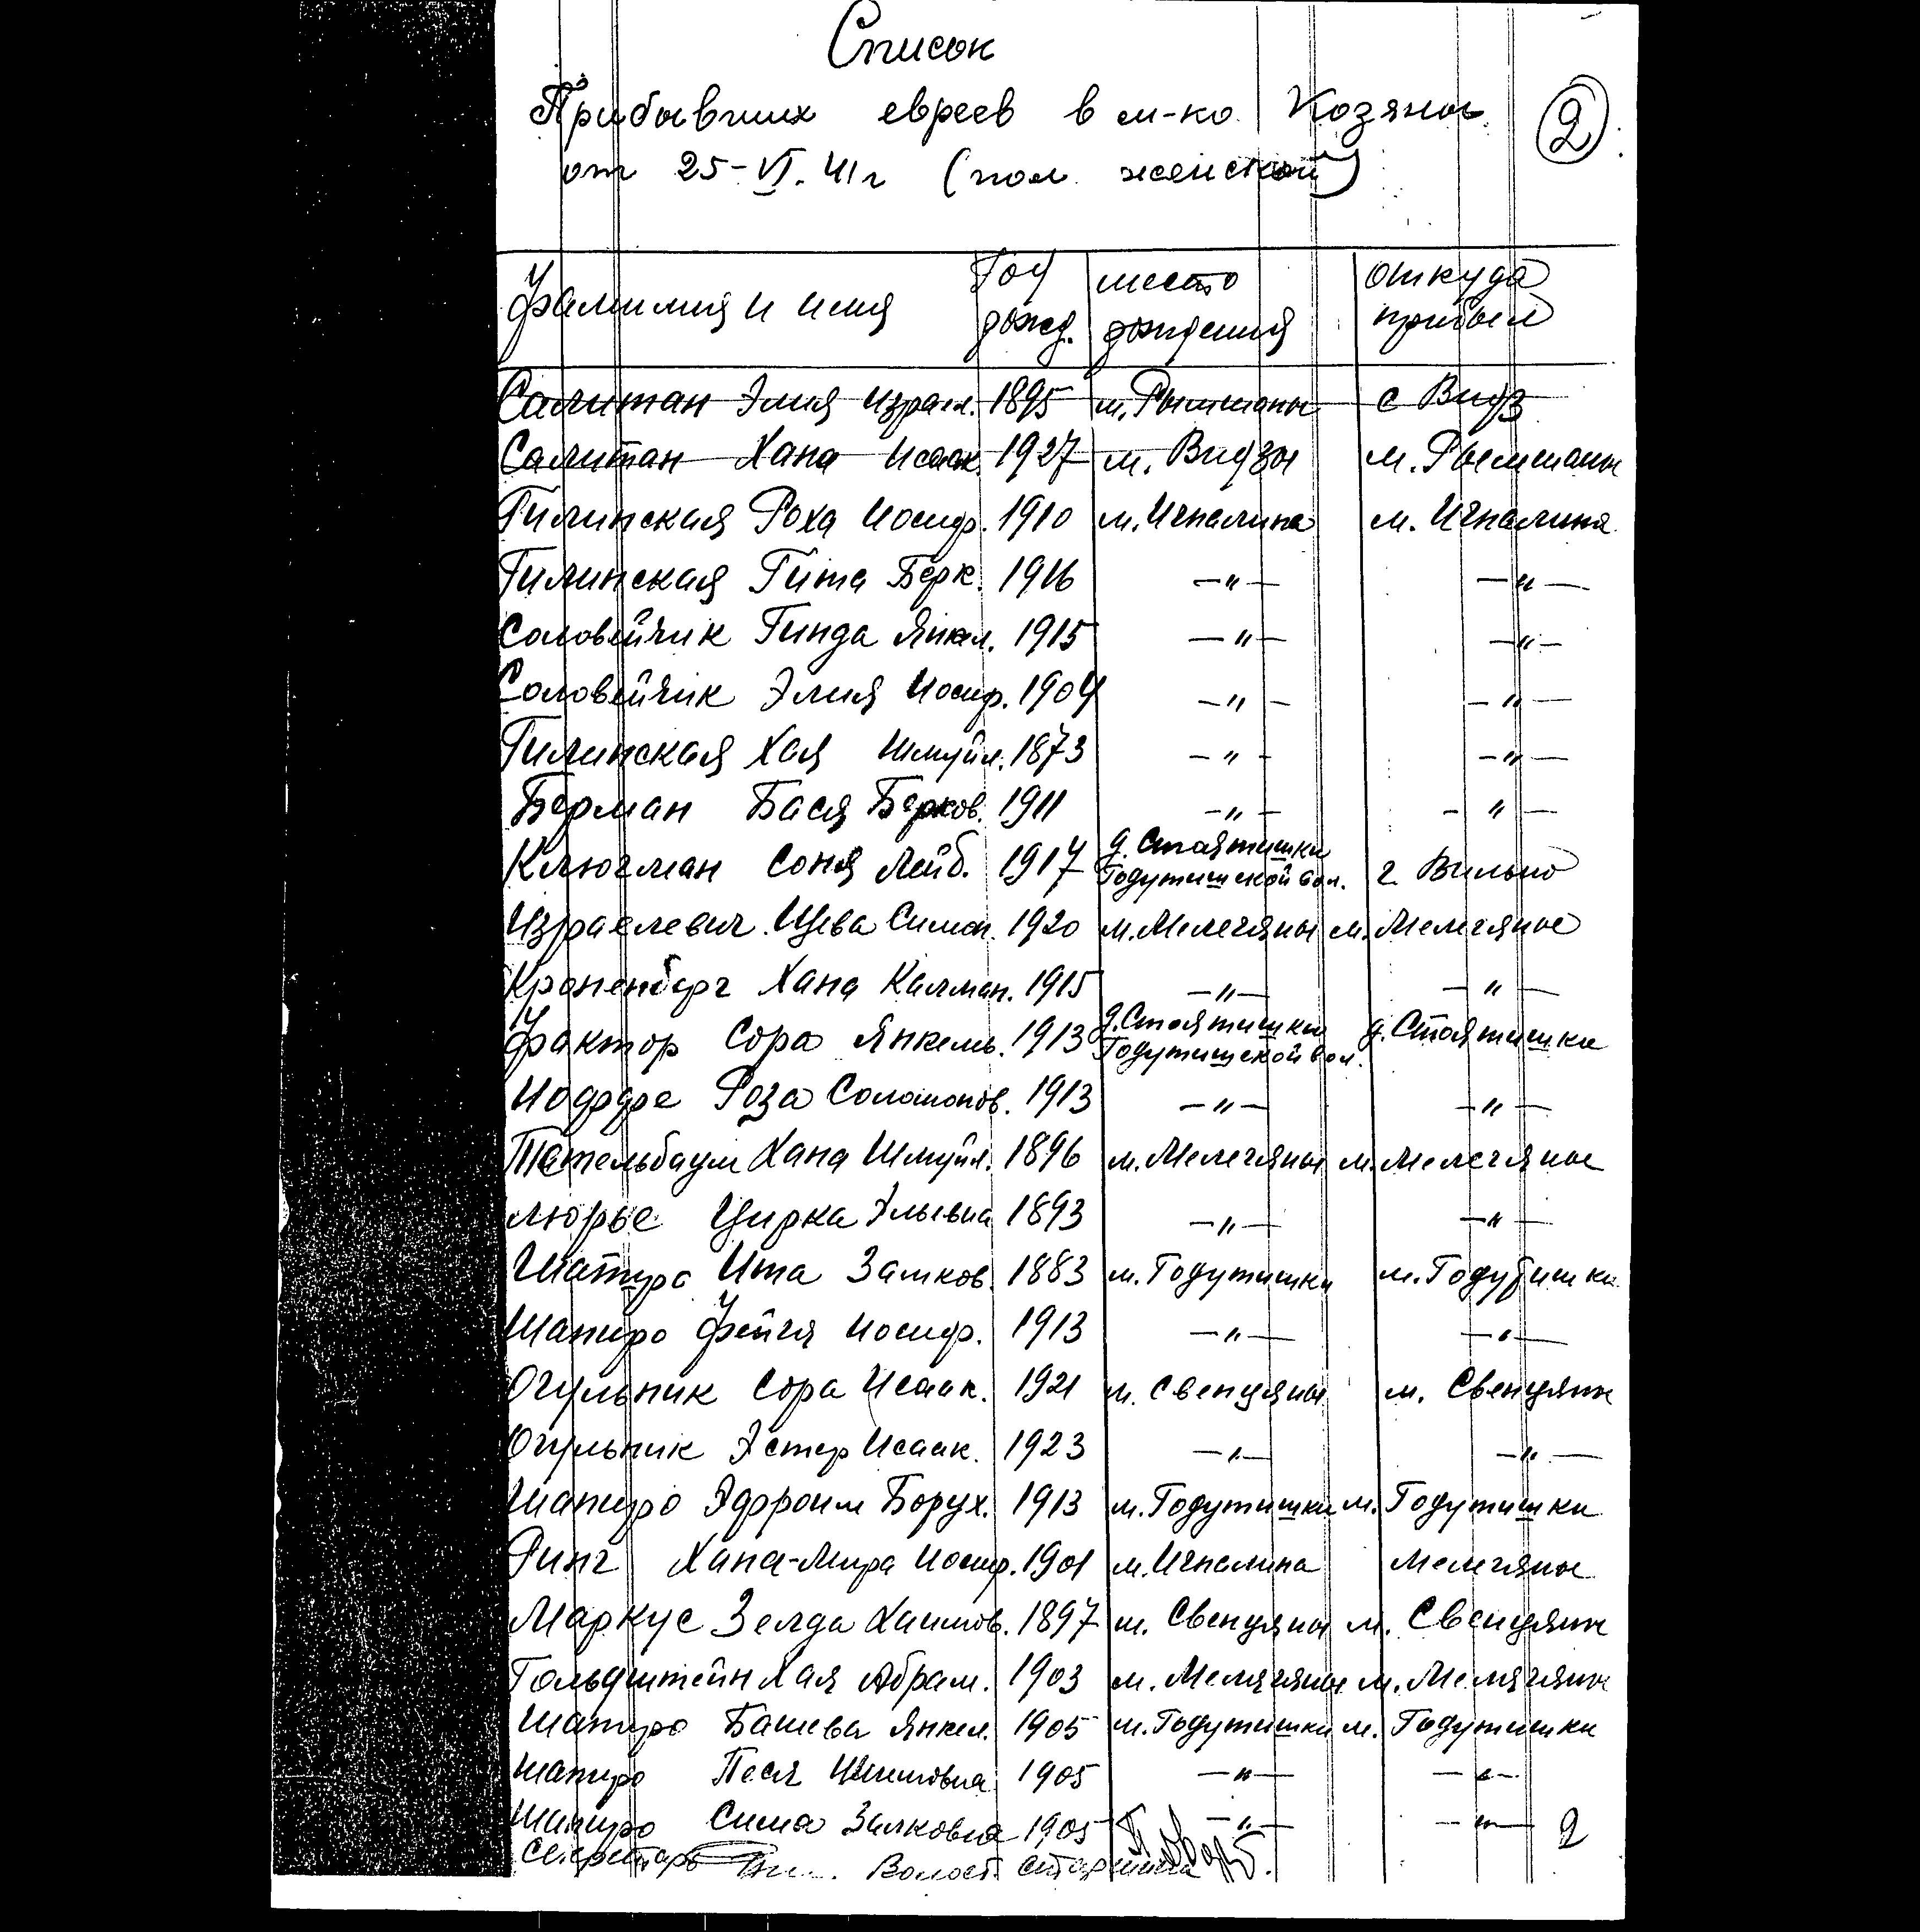 Список
Прибывших евреев в м-ко Козяны
2
от 25-VI.41г (пол женский)
Фамилия и имя Год рожд. место рождения откуда прибыл
Салитан Элия Израил. 1895 м. Рымшаны с Видз
Салитан Хана Исаак. 1927 м. Видзы м. Рымшаны
Гилинская Роха Иосиф. 1910 м. Игналина м. Игналина
Гилинская Гита Берк. 1916 —"— —"—
Соловейчик Гинда Янкел. 1915 —"— —"—
Соловейчик Элия Иосиф. 1904 —"— —"—
Гилинская Хая Шмуйл. 1873 —"— —"—
Берман Бася Берков. 1911 —"— —"—
Ключман Соня Лейб. 1917 д. Стаятишки Годутишской вол. г. Вильно
Израелевич Щева Симон. 1920 м. Мелегяны м. Мелегяные
Кроненберг Хана Калман. 1915 —"— —"—
Фактор Сора Янкель. 1913 д. Стоятишки Годутишской вол. д. Стоятишки
Иоффе Роза Соломонов. 1913 —"— —"—
Тательбаум Хана Шмуйл. 1896 м. Мелегяны м. Мелегяные
Люрье Цирка Эльевна 1893 —"— —"—
Шапиро Ита Залков. 1883 м. Годутишки м. Годутишки
Шапиро Фейгя Иосиф. 1913 —"— —"—
Огульник Сора Исаак. 1921 м. Свенцяны м. Свенцяны
Огульник Эстер Исаак. 1923 —"— —"—
Шапиро Эфроим Борух. 1913 м. Годутишки м. Годутишки
Ринг Хана-Мира Иосиф. 1901 м. Игналина Мелегяны
Маркус Зелда Хаимов. 1897 м. Свенцяны м. Свенцяны
Гольдштейн Хая Абрам. 1903 м. Мелягяны м. Мелягяны
Шапиро Башева Янкел. 1905 м. Годутишки м. Годутишки
Шапиро Песя 1905 —"— —"—
Шапиро Сима Залковна 1905 —"— —"— 2
Секретарь Волост. старшина